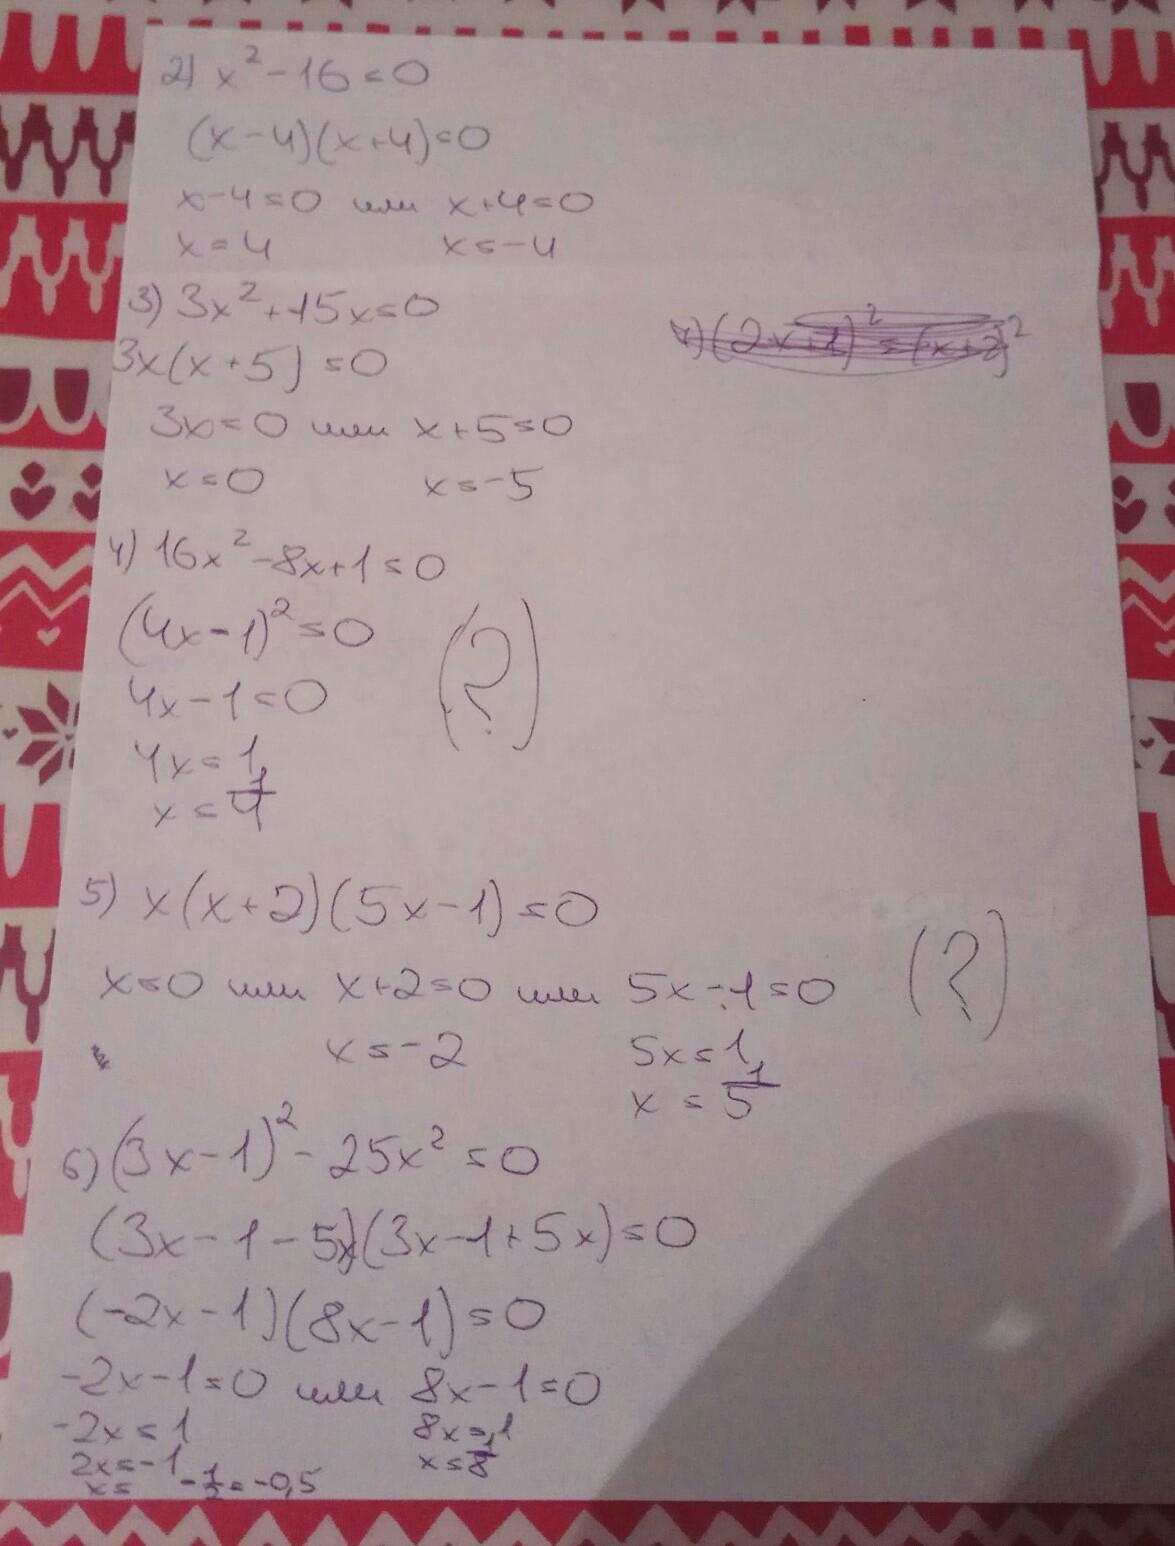 2) x² - 16 = 0
(x - 4)(x + 4) = 0
x - 4 = 0 или x + 4 = 0
x = 4 x = -4
3) 3x² + 15x = 0
3x(x + 5) = 0
3x = 0 или x + 5 = 0
x = 0 x = -5
4) 16x² - 8x + 1 = 0
(4x - 1)² = 0 (?)
4x - 1 = 0
4x = 1
x = 1/4
5) x(x + 2)(5x - 1) = 0
x = 0 или x + 2 = 0 или 5x - 1 = 0 (?)
x = -2 5x = 1
x = 1/5
6) (3x - 1)² - 25x² = 0
(3x - 1 - 5x)(3x - 1 + 5x) = 0
(-2x - 1)(8x - 1) = 0
-2x - 1 = 0 или 8x - 1 = 0
-2x = 1 8x = 1
2x = -1 x = 1/8
x = -1/2 = -0,5